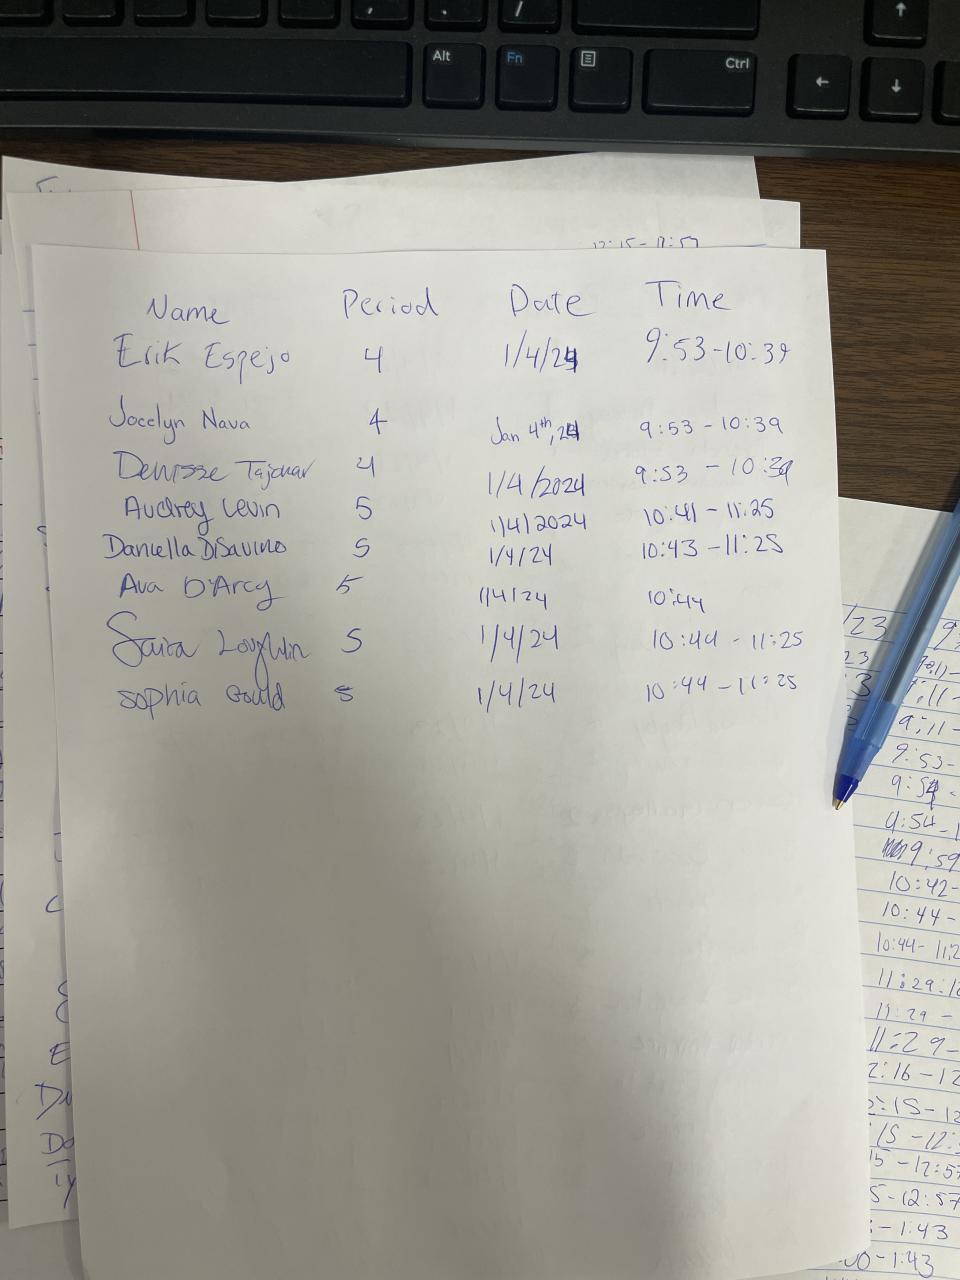 Alt Fn Ctrl
12:15-12:57
Name Period Date Time
Erik Espejo 4 1/4/24 9:53-10:39
Jocelyn Nava 4 Jan 4th, 24 9:53-10:39
Denisse 4 1/4/2024 9:53-10:39
Audrey Levin 5 1/4/2024 10:41-11:25
Daniella DiSavino 5 1/4/24 10:43-11:25
Ava D'Arcy 5 1/4/24 10:44
Saira Loughlin 5 1/4/24 10:44-11:25
Sophia Gould 5 1/4/24 10:44-11:25
/23
23
9:11-
9:53-
9:54-
9:54-1
9:59
10:42-
10:44-
10:44-11:2
11:29-12
11:29-
11:29-
2:16-12
2:15-12
:15-12:
15-12:57
5-12:57
-1:43
00-1:43